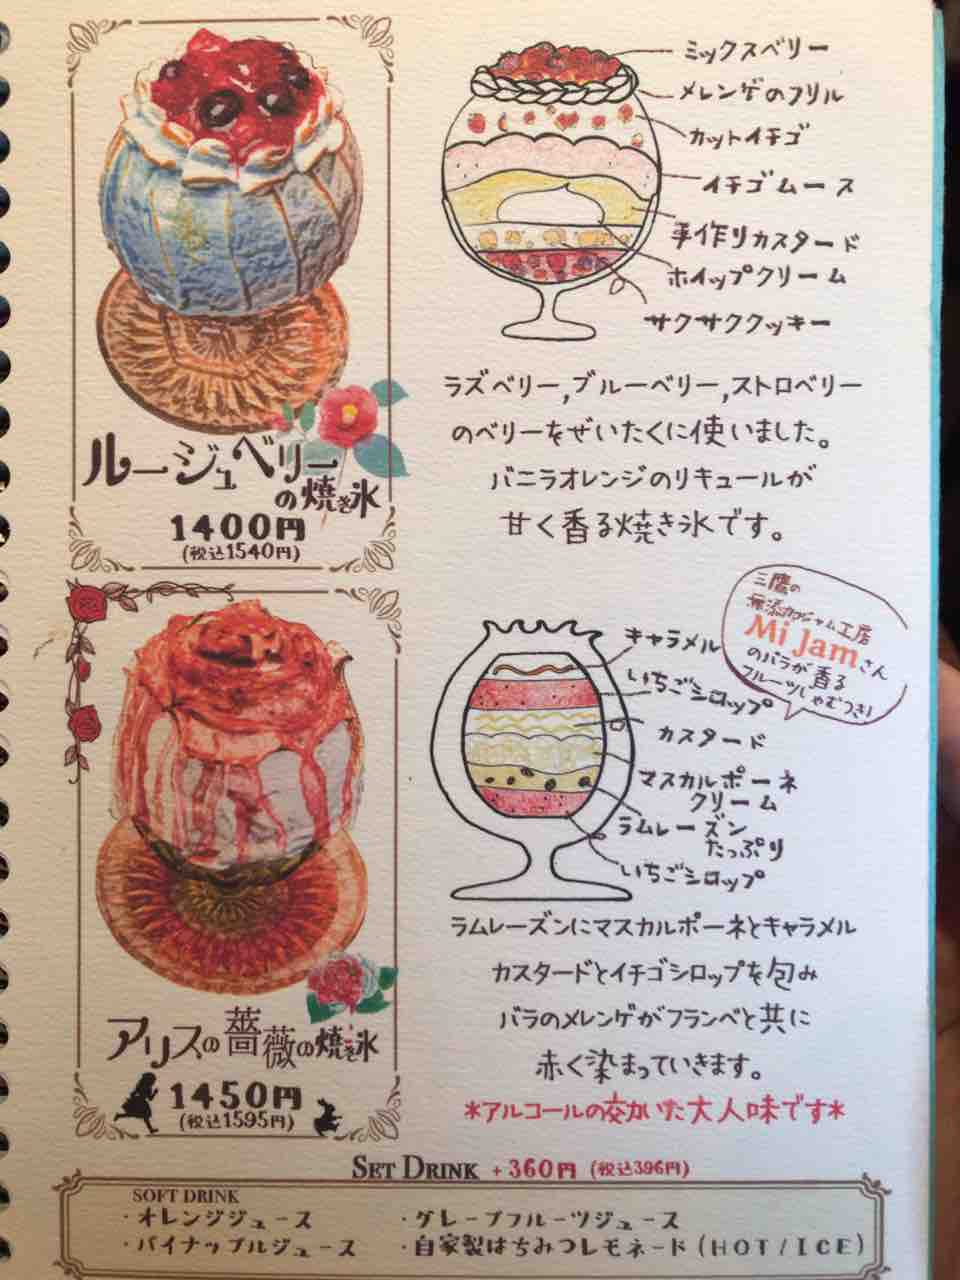 ミックスベリー
メレンゲのフリル
カットイチゴ
イチゴムース
手作りカスタード
ホイップクリーム
サクサククッキー
ラズベリー,ブルーベリー,ストロベリー
のベリーをぜいたくに使いました。
バニラオレンジのリキュールが
甘く香る焼き氷です。
ルージュベリー
の焼き氷
1400円
(税込1540円)
三鷹の
無添加ジャム工房
Mi Jamさん
のバラが香る
フルーツじゃむつき!
キャラメル
いちごシロップ
カスタード
マスカルポーネ
クリーム
ラムレーズン
たっぷり
いちごシロップ
ラムレーズンにマスカルポーネとキャラメル
カスタードとイチゴシロップを包み
バラのメレンゲがフランベと共に
赤く染まっていきます。
*アルコールの効いた大人味です*
アリスの薔薇の焼き氷
1450円
(税込1595円)
SET DRINK +360円 (税込396円)
SOFT DRINK
・オレンジジュース ・グレープフルーツジュース
・パイナップルジュース ・自家製はちみつレモネード(HOT/ICE)